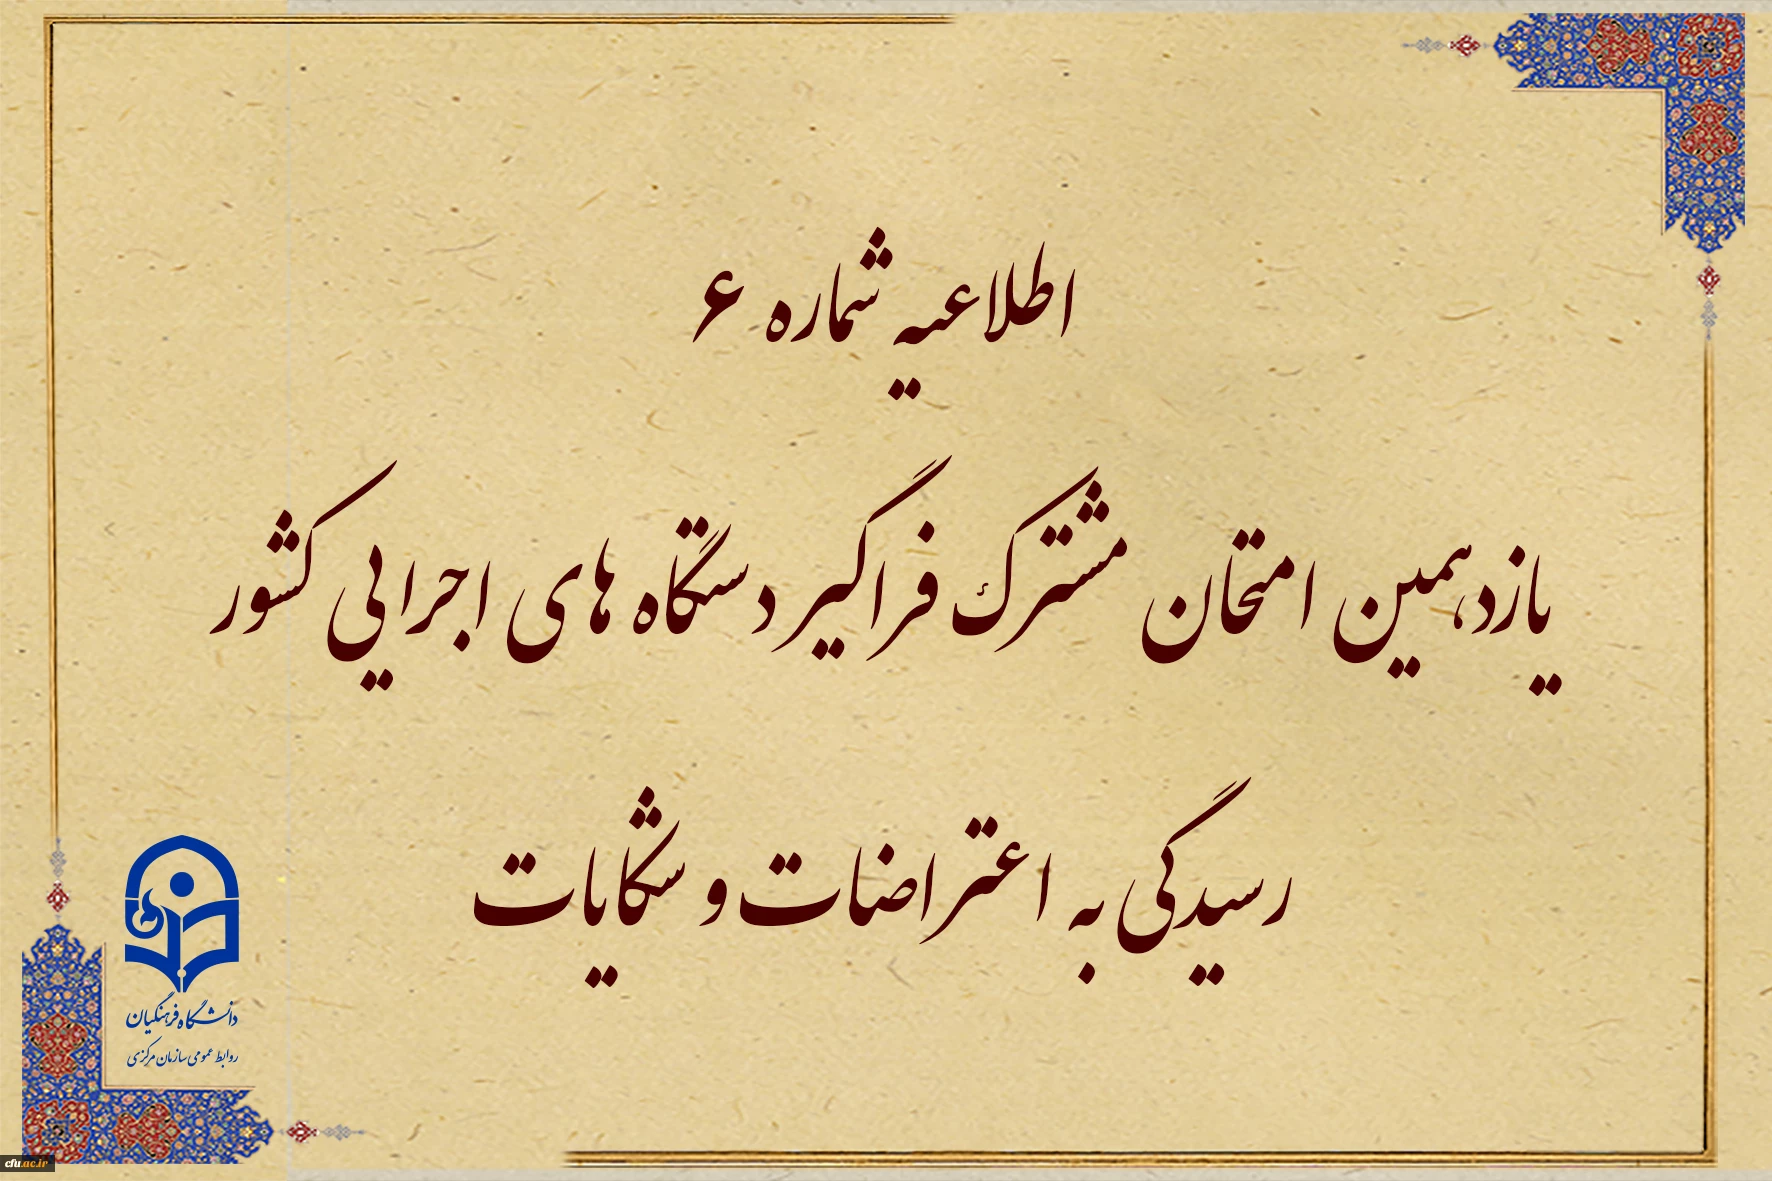 اطلاعیه شماره ۶
یازدهمین امتحان مشترک فراگیر دستگاه های اجرایی کشور
رسیدگی به اعتراضات و شکایات
دانشگاه فرهنگیان
روابط عمومی سازمان مرکزی
cfu.ac.ir